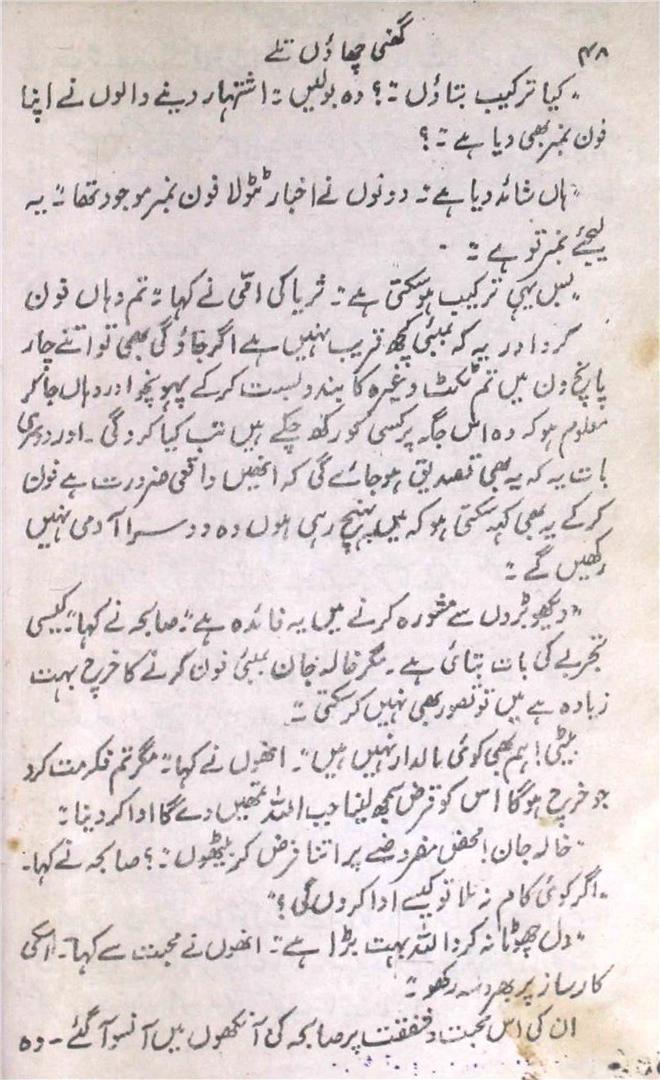 ۴۸ گھنی چھاؤں تلے
"کیا ترکیب بتاؤں"؟ وہ بولیں "اشتہار دینے والوں نے اپنا
فون نمبر بھی دیا ہے"؟
"ہاں شائد دیا ہے"۔ دونوں نے اخبار ٹٹولا فون نمبر موجود تھا "یہ
لیجئے نمبر تو ہے"۔
"بس یہی ترکیب ہو سکتی ہے"۔ ثریا کی امّی نے کہا "تم وہاں فون
کردو اور یہ کہ بمبئی کچھ قریب نہیں ہے اگر جاؤ گی بھی تو اتنے چار
پانچ دن میں تم ٹکٹ وغیرہ کا بندوبست کرکے پہونچو اور وہاں جاکر
معلوم ہو کہ وہ اس جگہ پر کسی کو رکھ چکے ہیں تب کیا کرو گی۔ اور دوسری
بات یہ کہ یہ بھی تصدیق ہو جائے گی کہ انھیں واقعی ضرورت ہے فون
کرکے یہ بھی کہہ سکتی ہو کہ میں پہنچ رہی ہوں وہ دوسرا آدمی نہیں
رکھیں گے"۔
"دیکھو بڑوں سے مشورہ کرنے میں یہ فائدہ ہے"۔ صابحہ نے کہا "کیسی
تجربے کی بات بتائی ہے۔ مگر خالہ جان بمبئی فون کرنے کا خرچ بہت
زیادہ ہے میں تو تصور بھی نہیں کرسکتی"۔
بیٹی! ہم بھی کوئی مالدار نہیں ہیں"۔ انھوں نے کہا "مگر تم فکر مت کرو
جو خرچ ہوگا اس کو قرض سمجھ لینا جب اللہ تمھیں دے گا ادا کر دینا"۔
"خالہ جان! محض مفروضے پر اتنا قرض کر بیٹھوں"؟ صابحہ نے کہا۔
"اگر کوئی کام نہ ملا تو کیسے ادا کروں گی؟"
"دل چھوٹا نہ کرو اللہ بہت بڑا ہے"۔ انھوں نے محبت سے کہا۔ "اسکی
کارسازی پر بھروسہ رکھو"۔
ان کی اس محبت و شفقت پر صابحہ کی آنکھوں میں آنسو آگئے۔ وہ